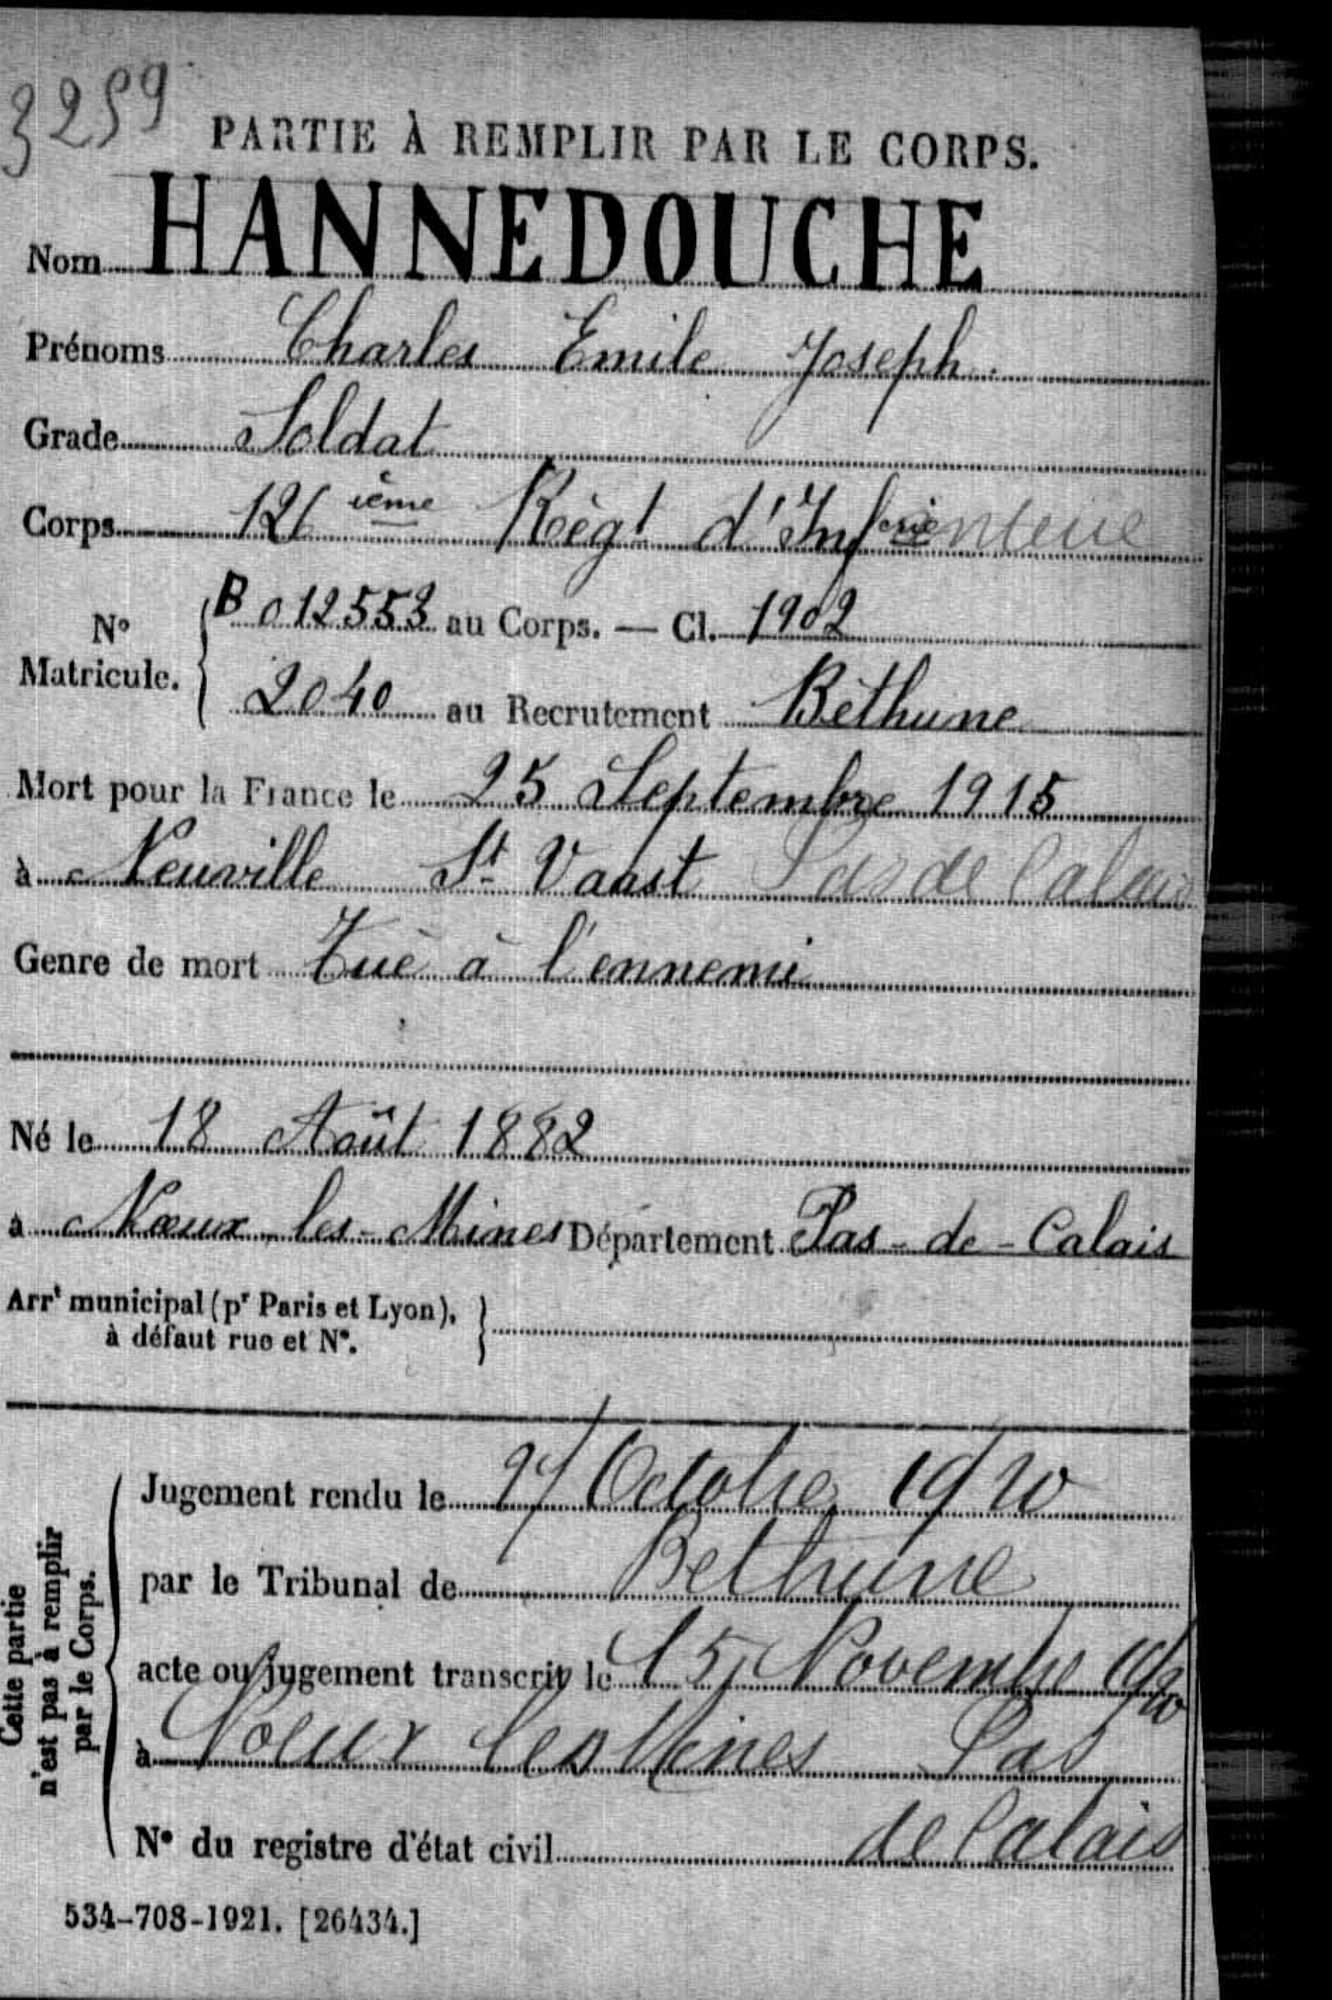 3259
PARTIE À REMPLIR PAR LE CORPS.
Nom HANNEDOUCHE
Prénoms Charles Emile Joseph.
Grade Soldat
Corps 121 ième Règt d'Inf erie anterie
N° Matricule. B 012553 au Corps. — Cl. 1902
2040 au Recrutement Béthune
Mort pour la France le 25 Septembre 1915
à Neuville St Vaast Pas de Calais
Genre de mort Tué à l'ennemi
Né le 18 Août 1882
à Nœux-les-Mines Département Pas-de-Calais
Arrt municipal (pr Paris et Lyon),
à défaut rue et N°.
Cette partie
n'est pas à remplir
par le Corps.
Jugement rendu le 27 Octobre 1920
par le Tribunal de Béthune
acte ou jugement transcrit le 15 Novembre 1920
à Nœux les Mines Pas
N° du registre d'état civil de Calais
534-708-1921. [26434.]